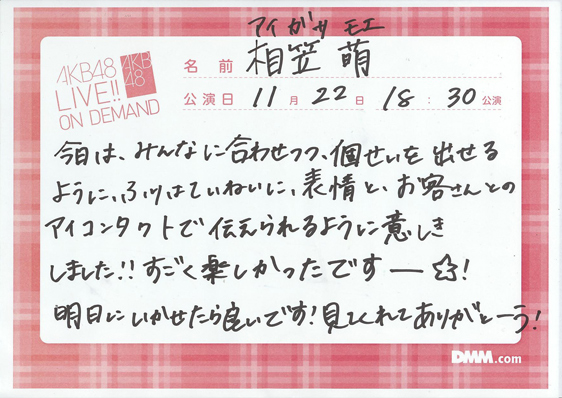 アイがサ モエ
AKB48
LIVE!!
ON DEMAND
AKB
48
名前 相笠 萌
公演日 11月22日 18:30公演
今日は、みんなに合わせつつ、個せいを出せる
ように、ふりはていねいに、表情と、お客さんとの
アイコンタクトで伝えられるように意しき
しました!!すごく楽しかったですー☆!
明日にいかせたら良いです!見てくれてありがとーう!
DMM.com